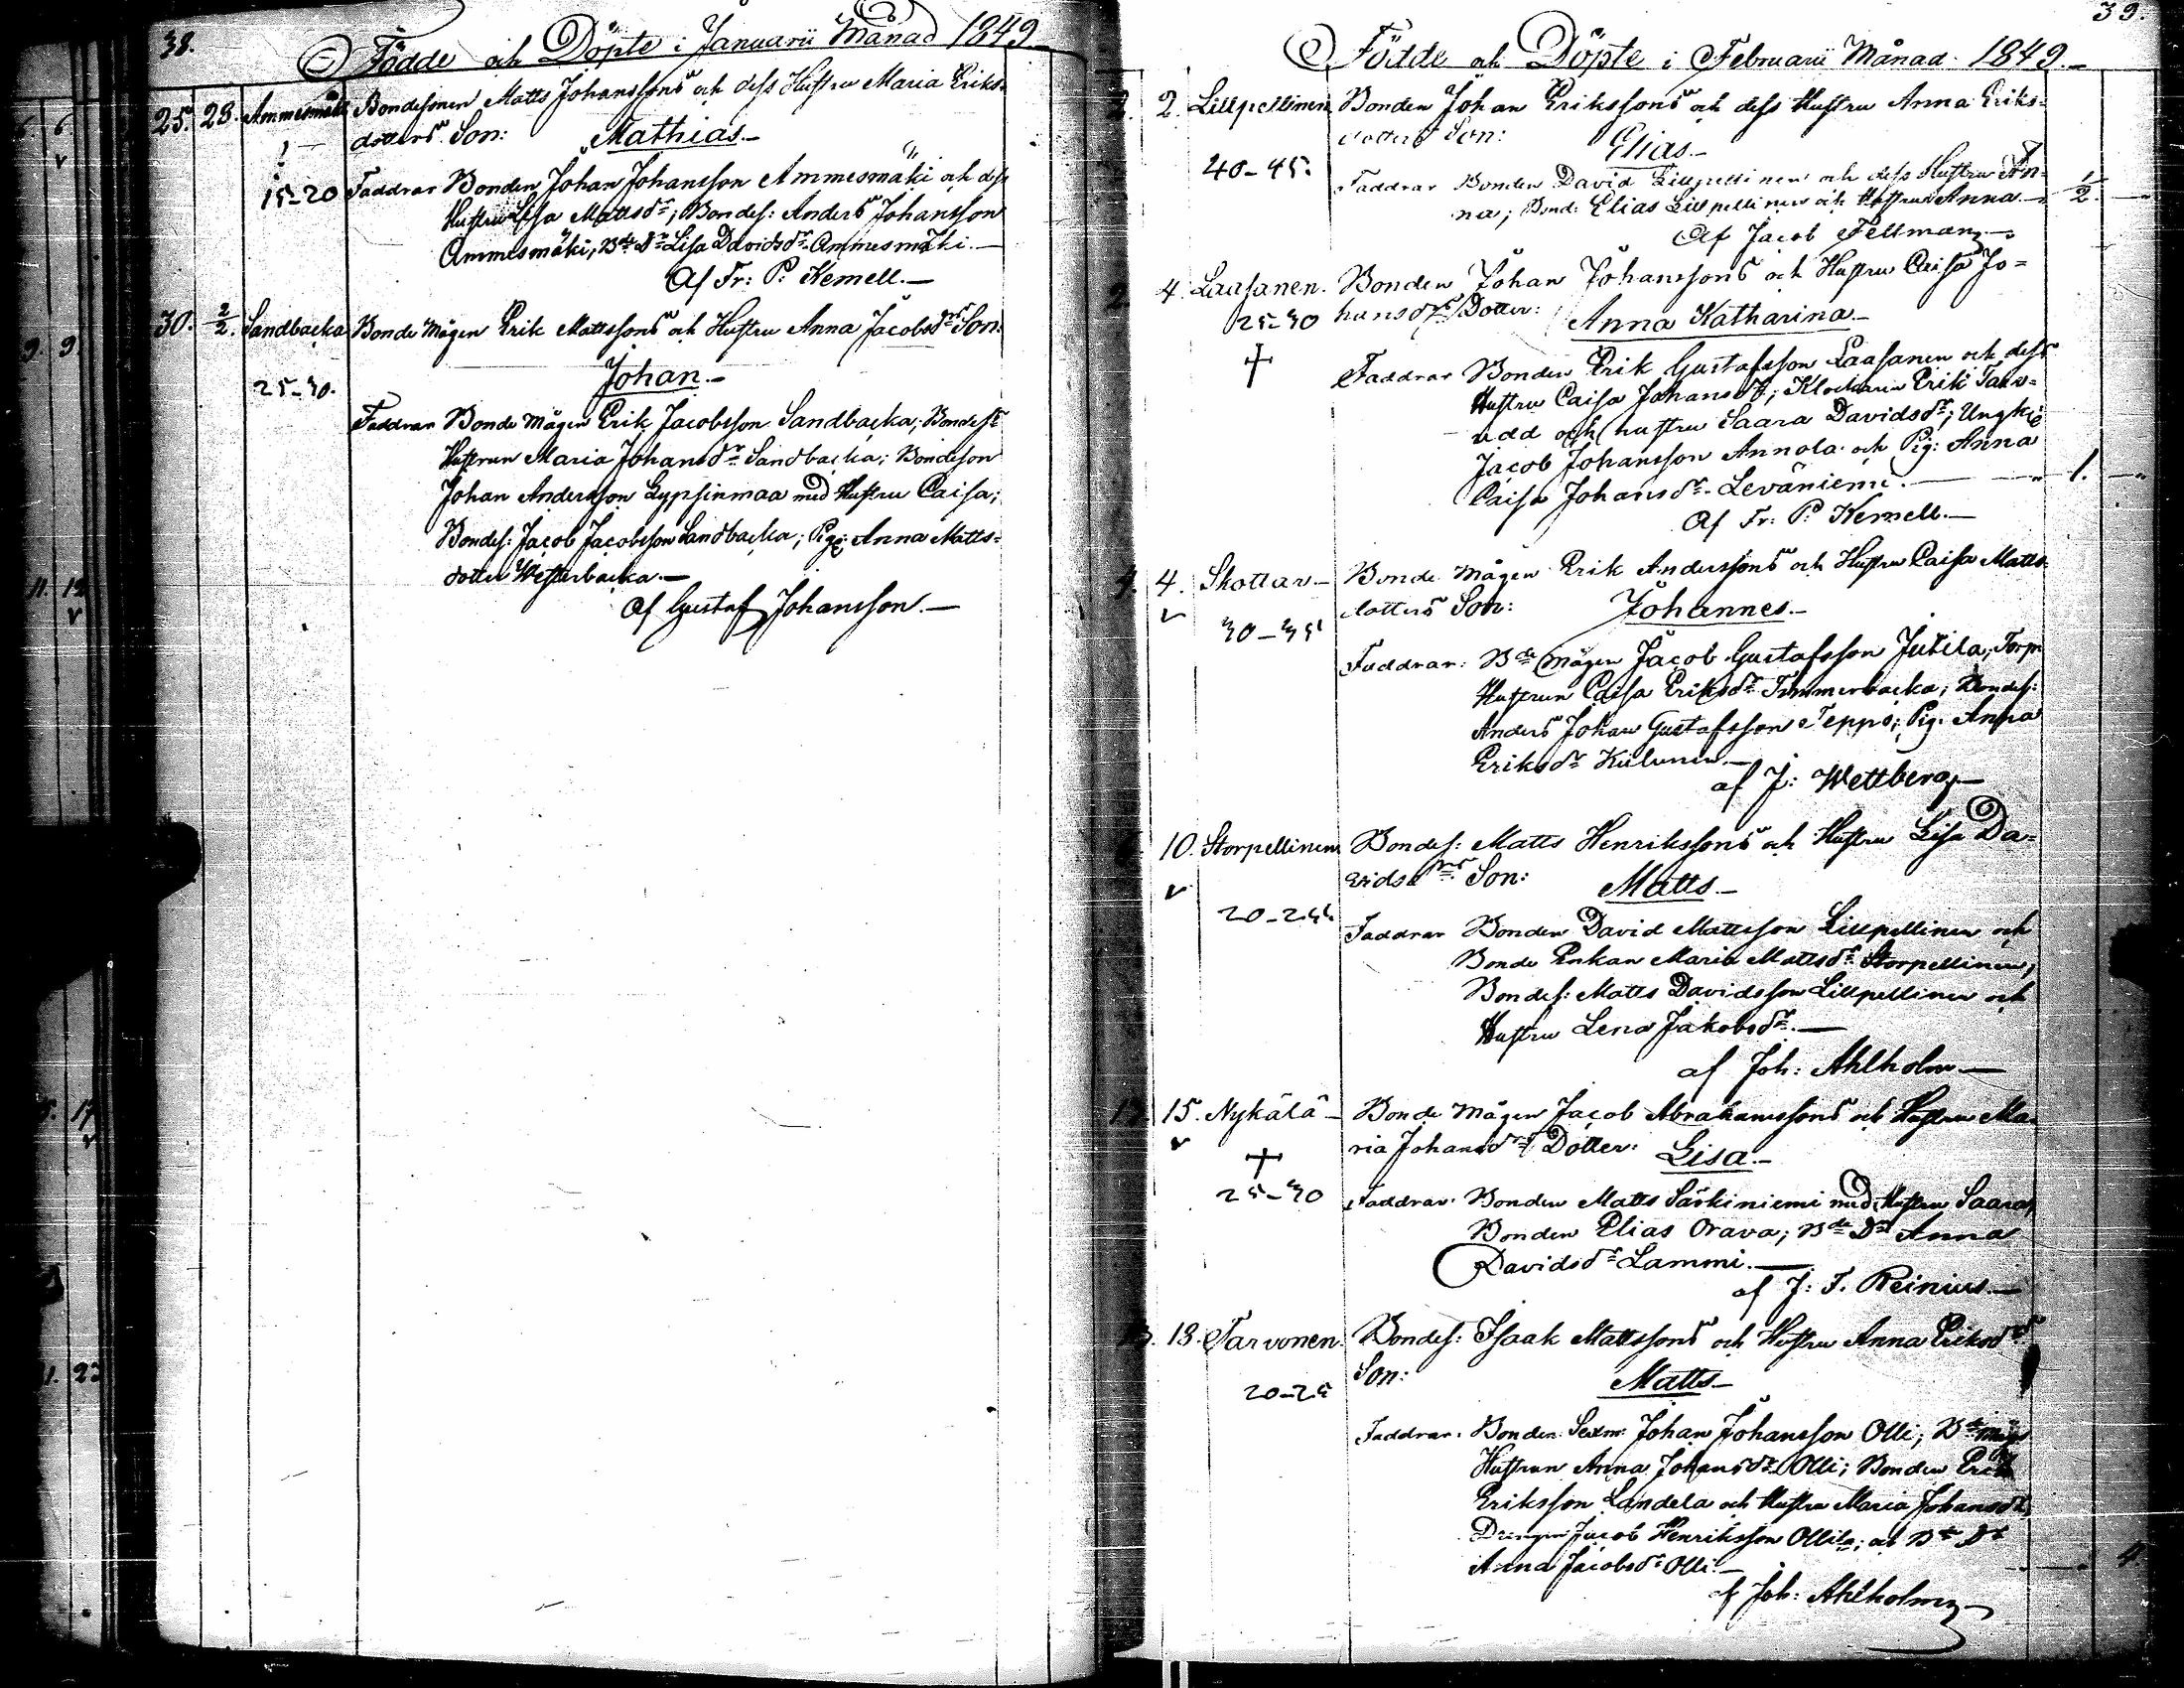 38.
Födde och Döpte i Januarii Månad 1849
25. 28. Ammesmäki Bondesonen Matts Johanssons och dess Hustru Maria Eriks-
dotters Son: Mathias.
15-20 Faddrar Bonden Johan Johansson Ammesmäki och dess
Hustru Lisa Mattsdr; Bondes: Anders Johansson
Ammesmäki; Bde Dr Lisa Davidsdr Ammesmäki.
Af Fr: P: Kemell.
30. 2/2. Sandbacka Bonde Mågen Erik Mattssons och Hustru Anna Jacobsdrs Son:
25-30. Johan.
Faddrar Bonde Mågen Erik Jacobsson Sandbacka; Bondes
Hustrun Maria Johansdr Sandbacka; Bondeson
Johan Andersson Gypsinmaa med Hustru Caisa;
Bondes: Jacob Jacobsson Sandbacka; Pig: Anna Matts-
dotter Westerbacka.
Af Gustaf Johansson.
39.
Födde och Döpte i Februarii Månad 1849.
2. 2. Lillpellinen Bonden Johan Erikssons och dess Hustru Anna Eriks-
dotters Son: Elias.
40-45. Faddrar Bonden David Lillpellinen och dess Hustru An-
na; Bond: Elias Lillpellinen och Hustru Anna 1/2.
Af Jacob Fellman
2. 4. Laasanen. Bonden Johan Johanssons och Hustru Caisa Jo-
25-30 hansdrs Dotter: Anna Katharina.
Faddrar Bonden Erik Gustafsson Laasanen och dess
Hustru Caisa Johansdr; Klockaren Erik
och hustru Saara Davidsdr; Ungk:
Jacob Johansson Annola och Pig: Anna
Caisa Johansdr Leväniemi. 1.
Af Fr: P: Kemell.
4. 4. Skottar Bonde Mågen Erik Anderssons och Hustru Caisa Matts-
dotters Son: Johannes.
30-35
Faddrar: Bde Mågen Jacob Gustafsson Jutila; Torp:
Hustrun Caisa Eriksdr Timmerbacka; Bondes:
Anders Johan Gustafsson Teppo; Pig: Anna
Eriksdr
af J: Wettberg
10. Storpellinen Bondes: Matts Henrikssons och Hustru Lisa Da-
vidsdrs Son: Matts
20-25
Faddrar Bonden David Mattsson Lillpellinen och
Bonde Enkan Maria Mattsdr Storpellinen;
Bondes: Matts Davidsson Lillpellinen och
Hustru Lena Jakobsdr.
af Joh: Ahlholm
15. Nykälä Bonde Mågen Jacob Abrahamssons och Hustru Ma-
ria Johansdrs Dotter: Lisa.
25-30 Faddrar Bonden Matts Särkiniemi med Hustru Saara;
Bonden Elias Orava; Bde Dr Anna
Davidsdr Lammi.
af J: T. Reinius
18. Tarvonen. Bondes: Isaak Mattssons och Hustru Anna Eriksdrs
Son: Matts
20-25
Faddrar. Bonden Sexm: Johan Johansson Olli; Bde Mågs
Hustrun Anna Johansdr Olli; Bonden Erik
Eriksson Landela och Hustru Maria Johansdr;
Drengen Jacob Henriksson Ollila; och Bde Dr
Anna Jacobsdr Olli. 4.
af Joh: Ahlholm